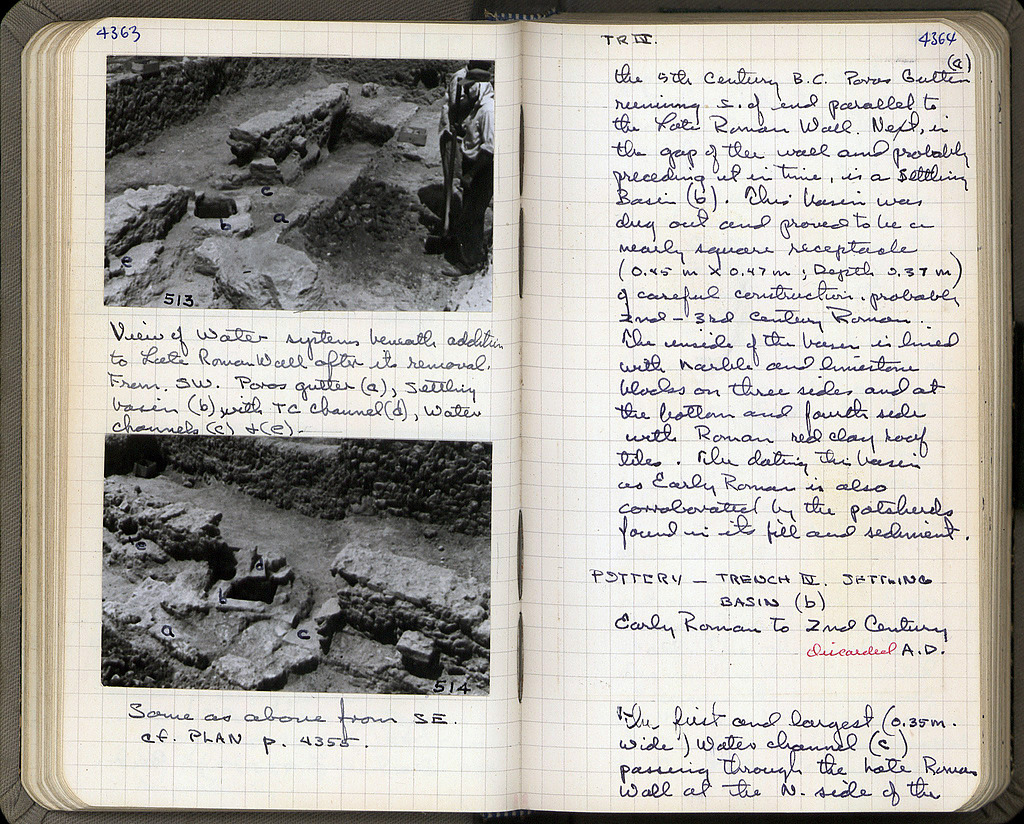 4363
e
c
a
b
513
View of Water systems beneath addition
to Late Roman Wall after its removal.
From SW. Poros gutter (a), Settling
basin (b) with TC channel (d), Water
channels (c) & (e).
e
d
b
a
c
514
Same as above from SE.
cf. PLAN p. 4355.
TR IV.
4364
(a)
the 5th Century B.C. Poros Gutter
running S. of and parallel to
the Late Roman Wall. Next, in
the gap of the wall and probably
preceding it in time, is a Settling
Basin (b). This basin was
dug out and proved to be a
nearly square receptacle
(0.45 m X 0.47 m; Depth 0.37 m)
of careful construction. probably
2nd - 3rd century Roman.
The inside of the basin is lined
with marble and limestone
blocks on three sides and at
the bottom and fourth side
with Roman red clay roof
tiles. The dating this basin
as Early Roman is also
corroborated by the potsherds
found in its fill and sediment.
POTTERY - TRENCH IV. SETTLING
BASIN (b)
Early Roman to 2nd Century
discarded A.D.
The first and largest (0.35m.
wide) Water channel (c)
passing through the Late Roman
Wall at the N. side of the